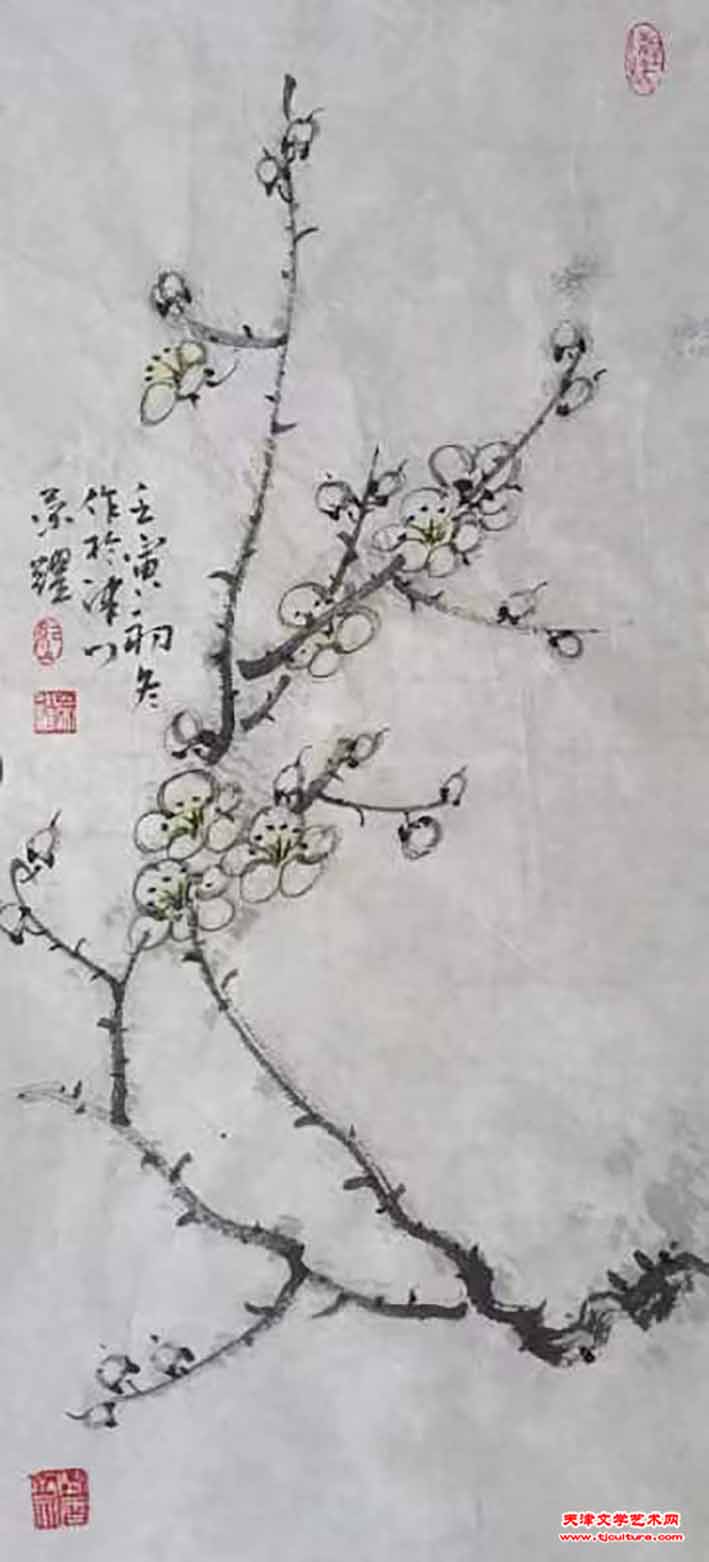 壬寅初冬
作於津门
荣耀
天津文学艺术网
www.tjculture.com